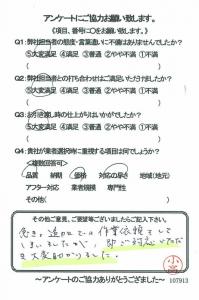 アンケートにご協力お願い致します。
《項目、番号に○をお願い致します。》
Q1:弊社担当者の態度・言葉遣いに不備はありませんでしたか?
⑤大変満足 ④満足 ③普通 ②やや不満 ①不満
( )
Q2:弊社担当者との打ち合わせはご満足いただけましたか?
⑤大変満足 ④満足 ③普通 ②やや不満 ①不満
( )
Q3:お引き渡し時の仕上がりはいかがでしたか?
⑤大変満足 ④満足 ③普通 ②やや不満 ①不満
( )
Q4:貴社が業者選択時に重視する項目は何でしょうか?
<複数回答可>
品質 納期 価格 対応の早さ 地域(地元)
アフター対応 業者規模 専門性
その他( )
その他ご意見、ご要望等ございましたらご記入下さい。
急な 作業依頼をして
しまいましたが、即ご対応いただき
大変助かりました。
~アンケートのご協力ありがとうございました~
107913